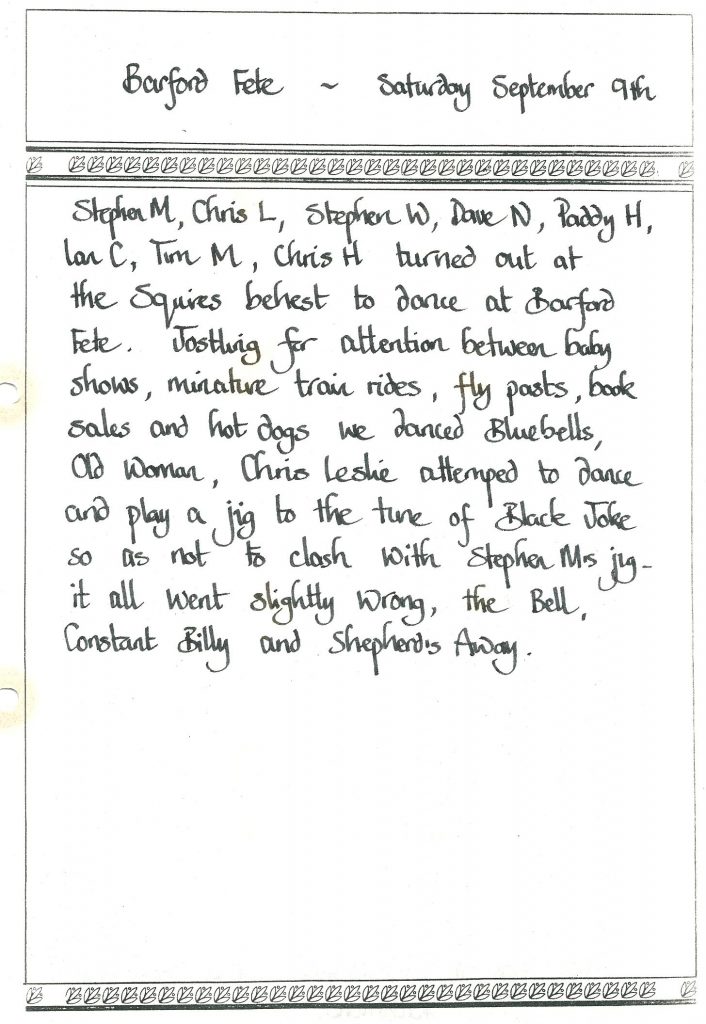 Barford Fete ~ Saturday September 9th
Stephen M, Chris L, Stephen W, Dave N, Paddy H,
Ian C, Tim M, Chris H turned out at
the Squires behest to dance at Barford
Fete. Jostling for attention between baby
shows, minature train rides, fly pasts, book
sales and hot dogs we danced Bluebells,
Old Woman, Chris Leslie attemped to dance
and play a jig to the tune of Black Joke
so as not to clash with Stephen M's jig -
it all went slightly wrong, the Bell,
Constant Billy and Shepherd's Away.